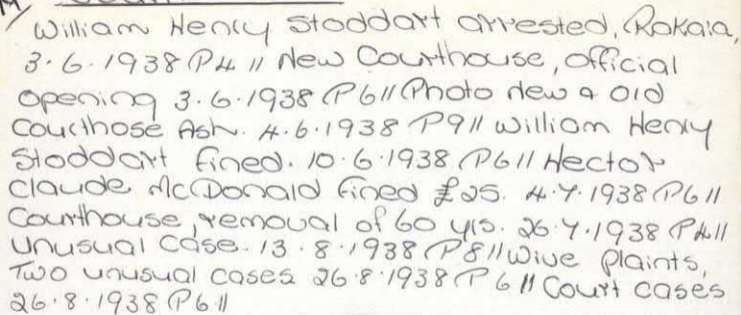 William Henry Stoddart arrested, Rakaia,
3.6.1938 P4 // New Courthouse, official
opening 3.6.1938 P6 // Photo New & old
Coucthose Ash. 4.6.1938 P9 // William Henry
Stoddart fined. 10.6.1938 P6 // Hector
Claude McDonald fined £25. 4.7.1938 P6 //
Courthouse, removal of 60 yrs. 26.7.1938 P4 //
Unusual Case. 13.8.1938 P8 // Wive Plaints,
Two unusual cases 26.8.1938 P6 // Court cases
26.8.1938 P6 //